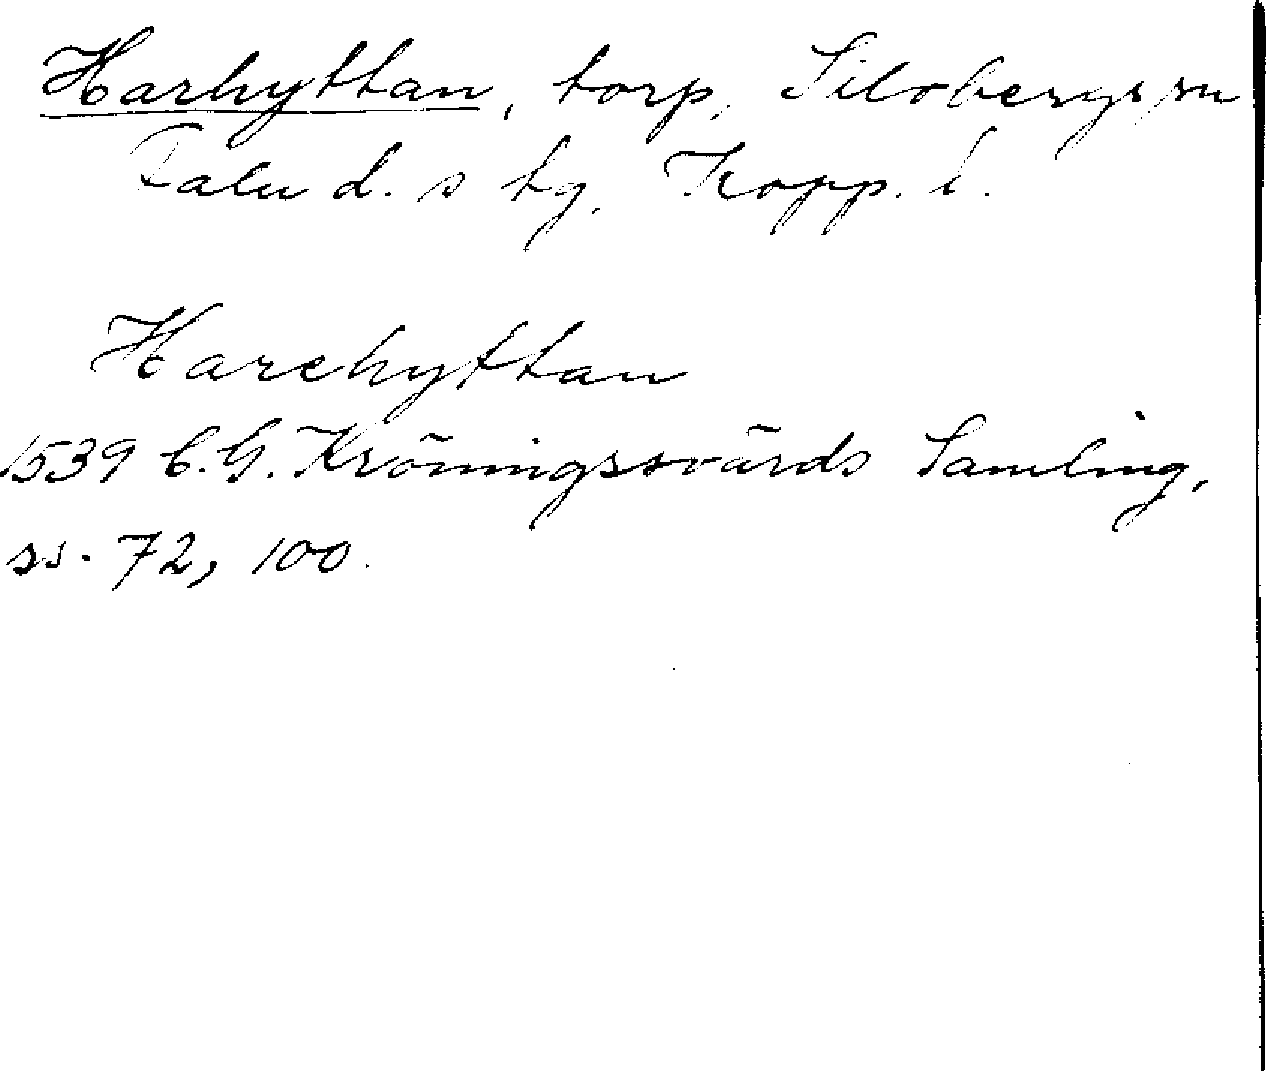 Harhyttan, torp, Silvbergs sn
Falu d. s tg, Kopp. l.
Harehyttan
1539 C.G. Kröningssvärds Samling,
ss. 72, 100.